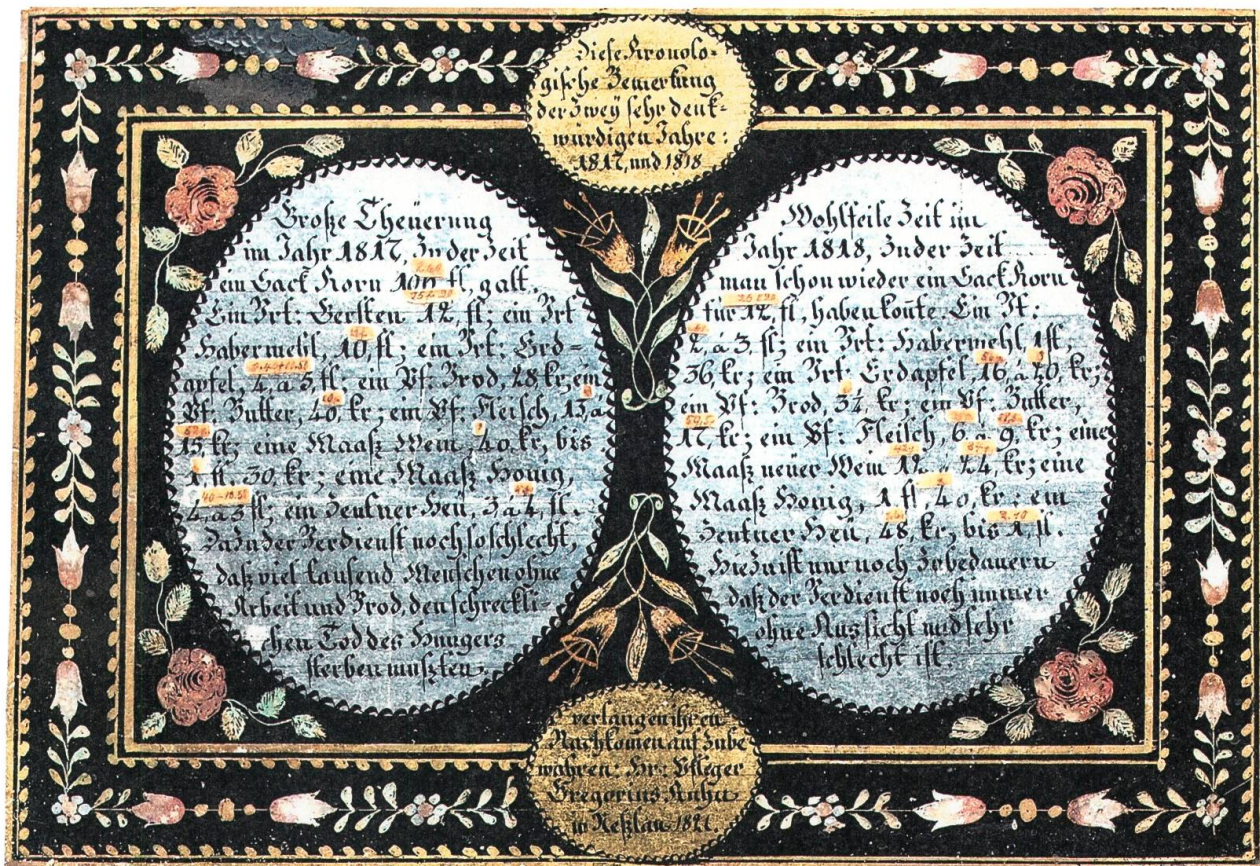 Diese Kronolo-
gische Bemerkung
der Zweÿ sehr denk-
würdigen Jahre:
1817, und 1818
Große Theüerung
im Jahr 1817, In der Zeit
ein Sack Korn 100 fl, galt,
Ein Vrt: Gersten 12, fl; ein Vrt
Habermehl, 10, fl; ein Vrt: Erd=
apfel, 4, a 5, fl; ein Pf: Brod, 28 kr; ein
Pf: Butter, 40, kr; ein Pf: Fleisch, 13, a
15 kr; eine Maaß Wein, 40, kr, bis
1 fl 30, kr; eine Maaß Honig,
4, a 5 fl; ein Zentner Heü, 3 a 4, fl.
Dazu der Verdienst noch so schlecht,
daß viel tausend Menschen ohne
Arbeit und Brod, den schreckli-
chen Tod des Hungers
sterben mußten.
Wohlfeile Zeit im
Jahr 1818, In der Zeit
man schon wieder ein Sack Korn
für 12, fl, haben kon̄te, Ein Vt:
2, a 3, fl; ein Vrt: Habermehl, 1 fl,
36, kr; ein Vrt: Erdapfel, 16, a 20, kr;
ein Pf: Brod, 3½, kr; ein Pf: Butter,
17, kr; ein Pf: Fleisch, 6 a 9, kr; eine
Maaß neüer Wein 12, a 24, kr; eine
Maaß Honig, 1 fl, 40, kr; ein
Zentner Heü, 48, kr, bis 1, fl.
Hiezu ist nur noch Zubedauern
daß der Verdienst noch immer
ohne Aussicht und sehr
schlecht ist.
verlangen ihren
Nachkom̄en auf Zube
wahren: Hr: Pfleger
Gregorius Kuhn
in Neßlau 1821.